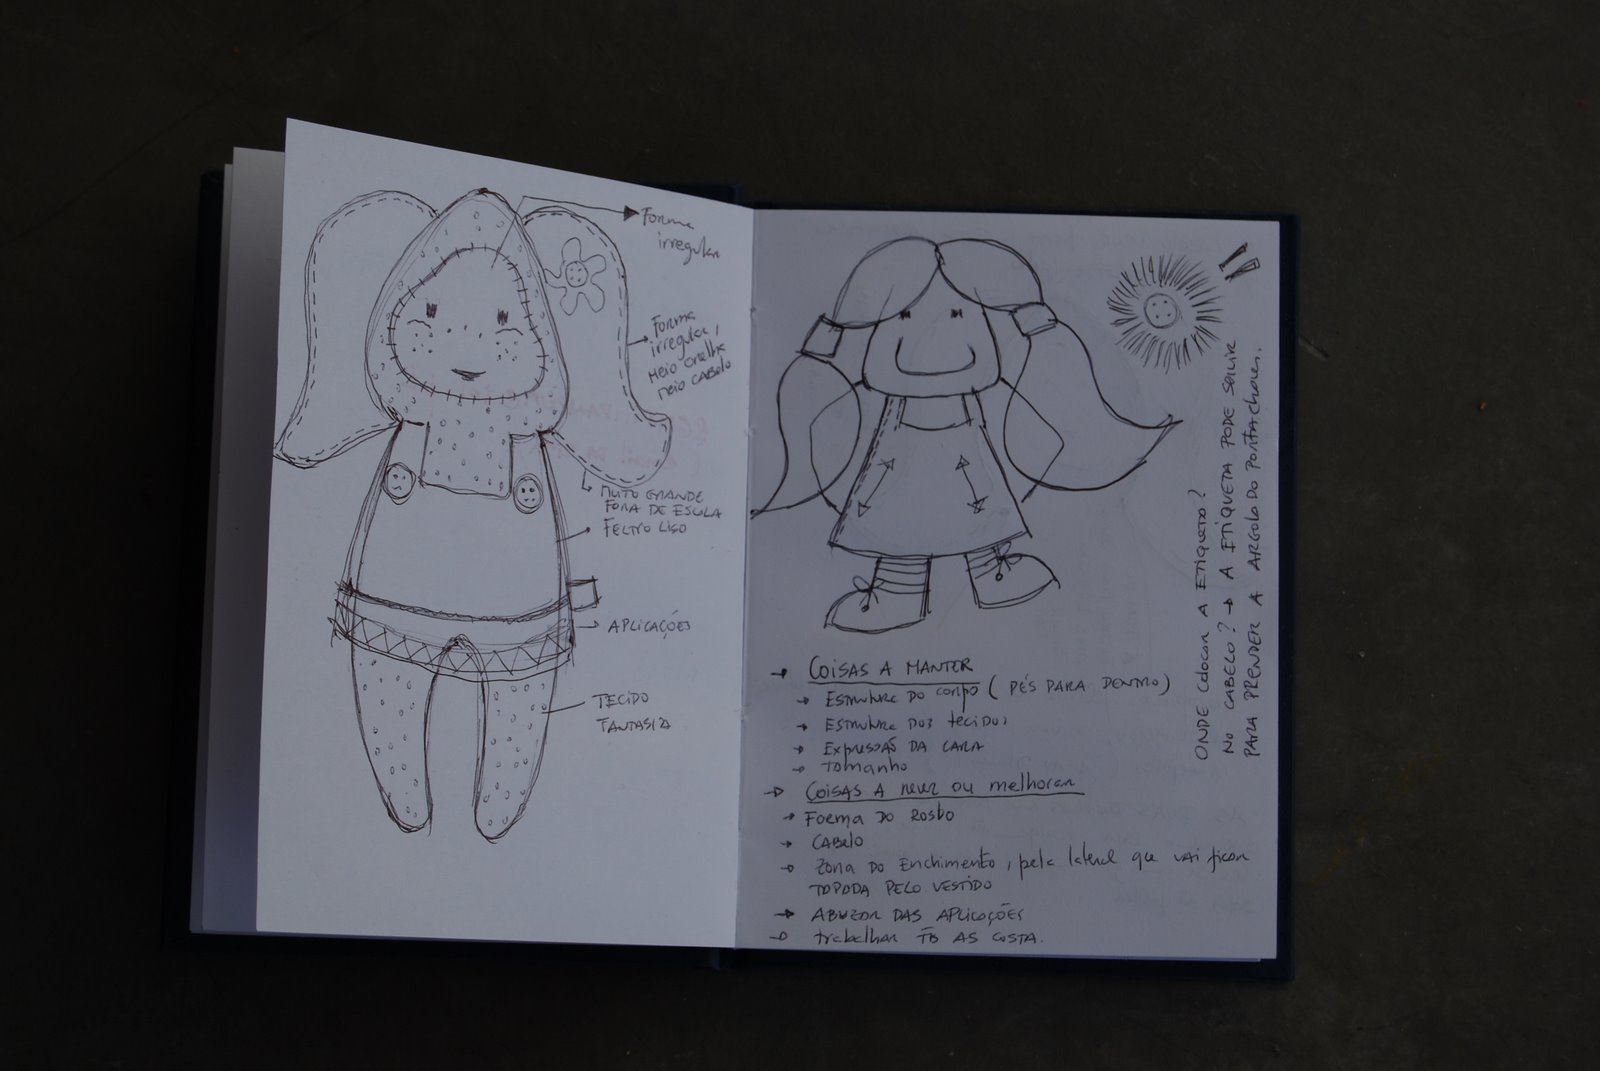 Forma
irregular
Forma
irregular,
meio orelha
meio cabelo
MUITO GRANDE
FORA DE ESCOLA
FELTRO LISO
APLICAÇÕES
TECIDO
FANTASIA
COISAS A MANTER
ESTRUTURA DO CORPO (PÉS PARA DENTRO)
ESTRUTURA DOS TECIDOS
EXPRESSÃO DA CARA
TOMANHO
COISAS A REVER OU MELHORAR
FORMA DO ROSTO
CABELO
ZONA DO ENCHIMENTO, pela lateral que vai ficar
TOPODA PELO VESTIDO
ABUZAR DAS APLICAÇÕES
trabalhar TB AS COSTA.
ONDE COLOCAR A ETIQUETA?
NO CABELO? → A ETIQUETA PODE SERVIR
PARA PRENDER A ARGOLA DO PORTACHAVES.